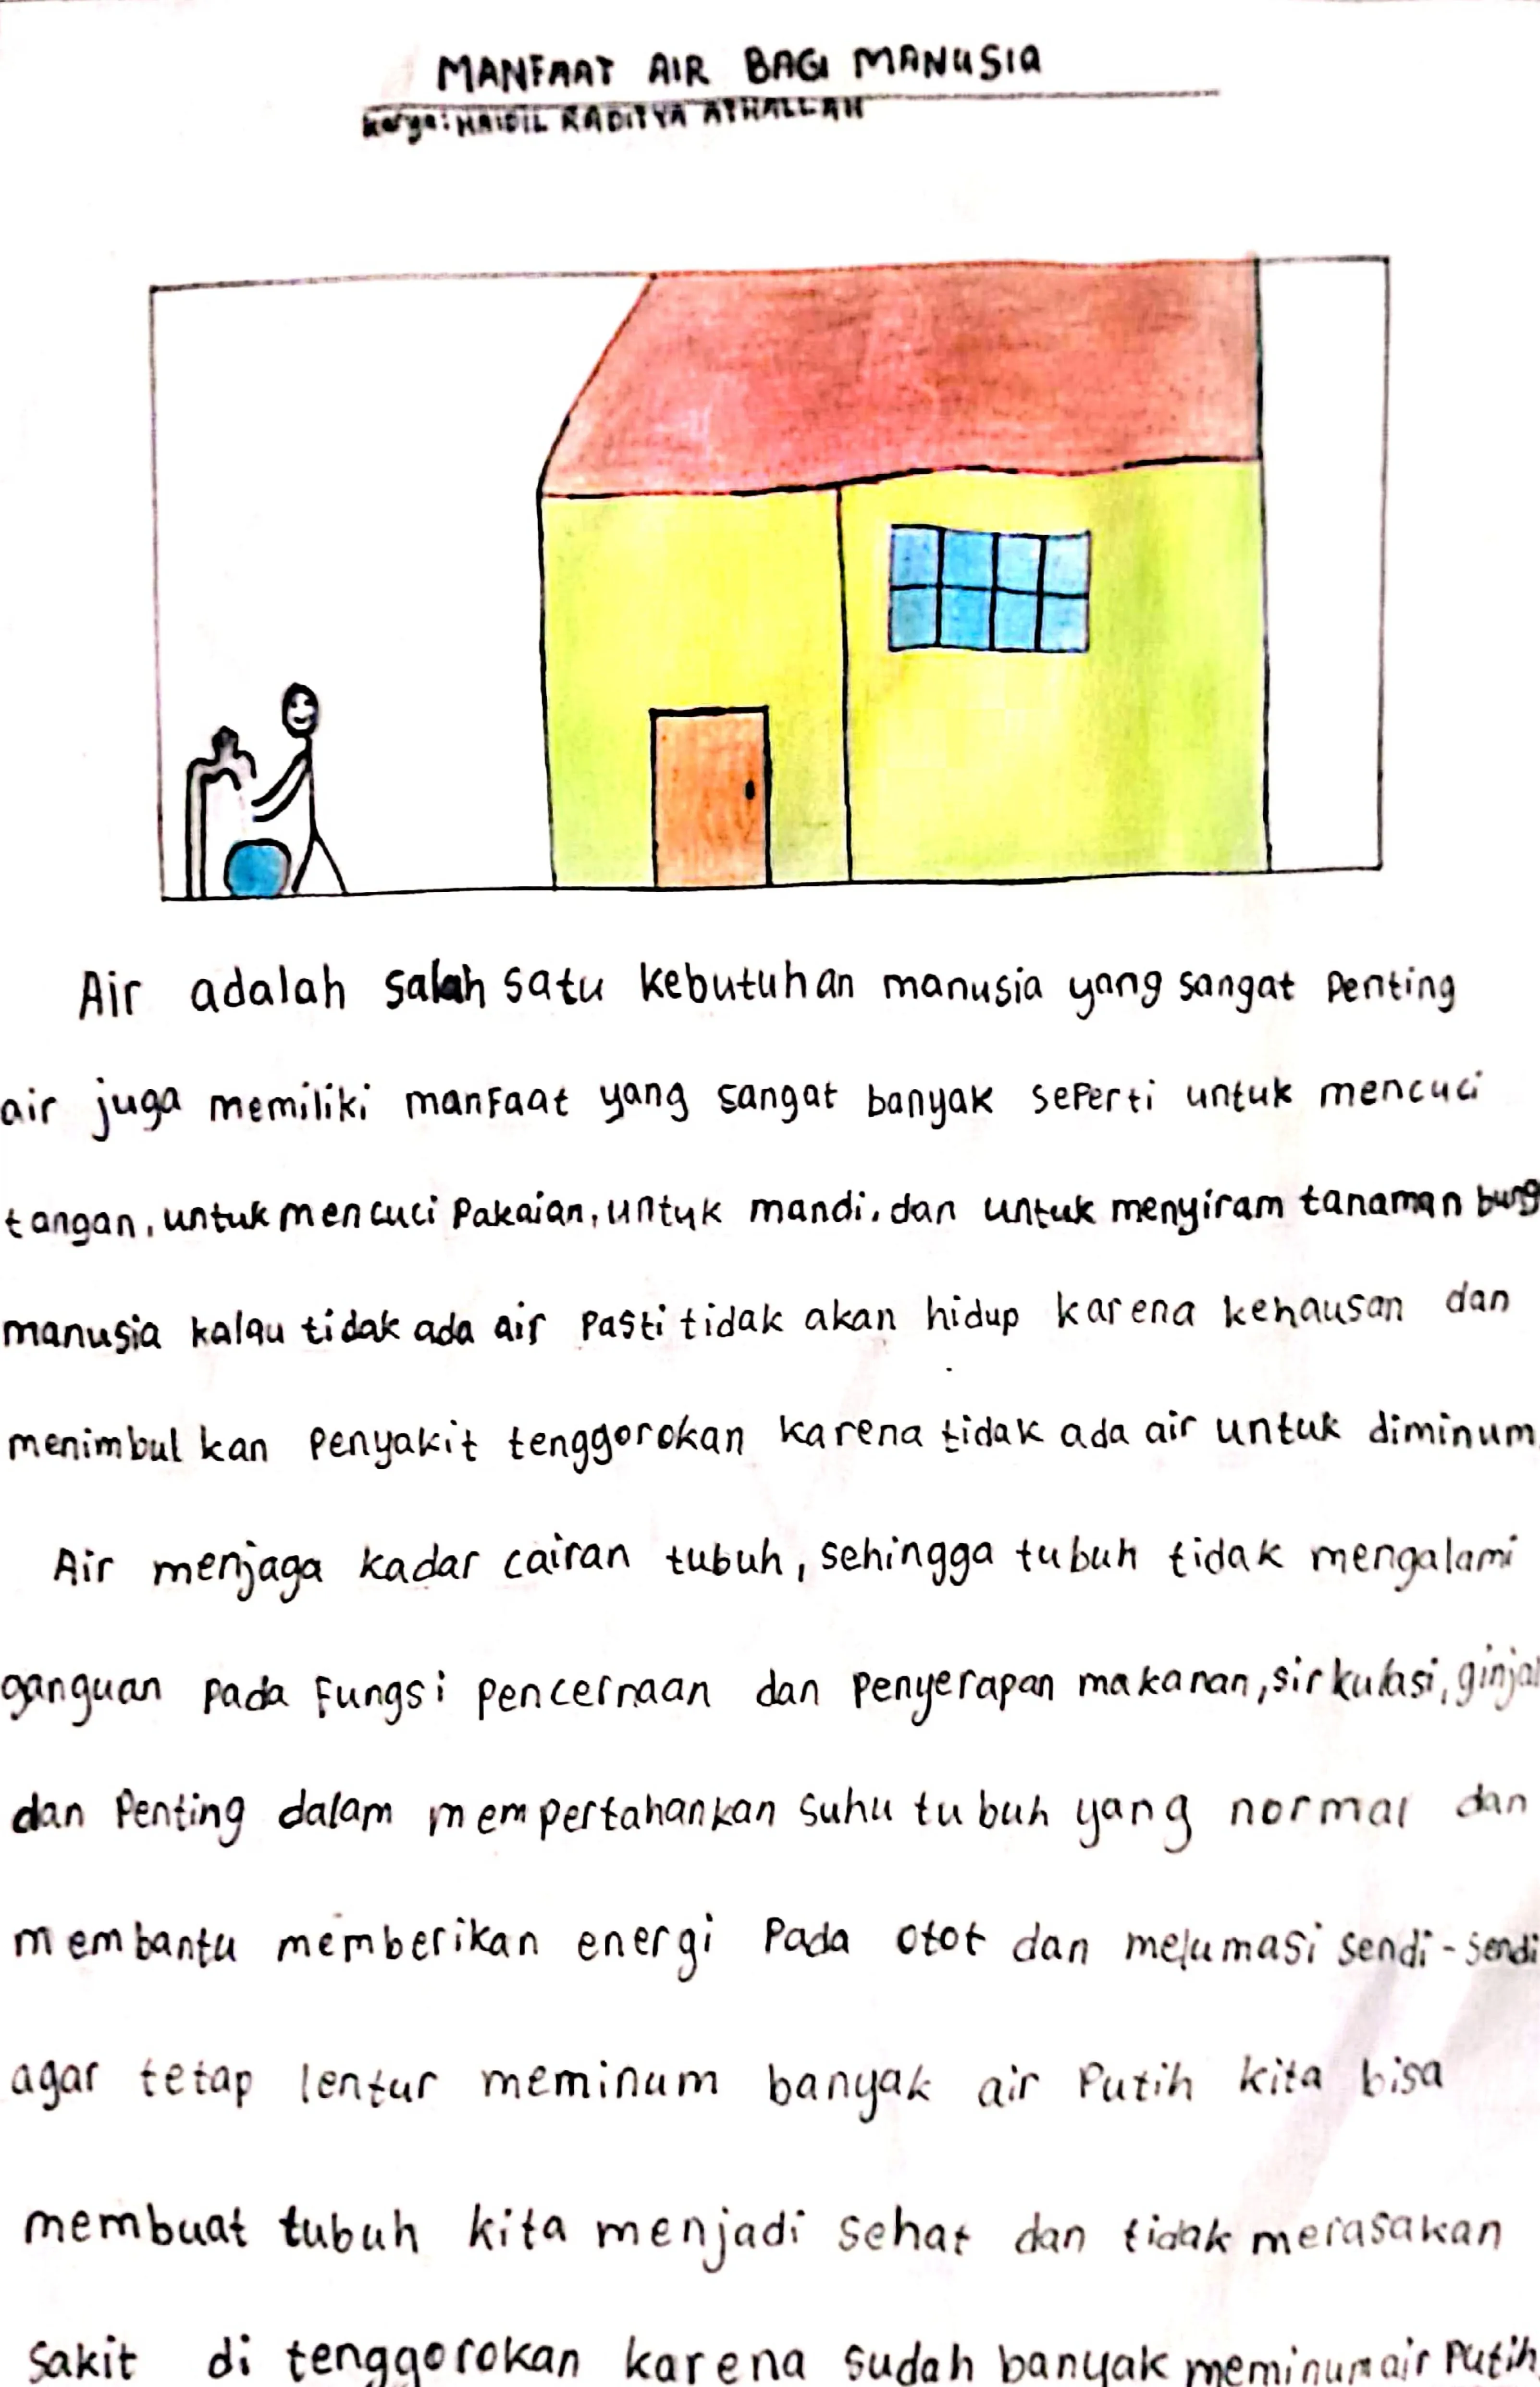 MANFAAT AIR BAGI MANUSIA
karya: HAIDIL RADITYA ATHALLAH
Air adalah salah satu kebutuhan manusia yang sangat penting
air juga memiliki manfaat yang sangat banyak seperti untuk mencuci
tangan, untuk mencuci pakaian, untuk mandi, dan untuk menyiram tanaman
manusia kalau tidak ada air pasti tidak akan hidup karena kehausan dan
menimbul kan penyakit tenggorokan karena tidak ada air untuk diminum
Air menjaga kadar cairan tubuh, sehingga tubuh tidak mengalami
ganguan pada fungsi pencernaan dan penyerapan makanan, sirkulasi, ginjal
dan penting dalam mempertahankan suhu tubuh yang normal dan
membantu memberikan energi pada otot dan melumasi sendi-sendi
agar tetap lentur meminum banyak air putih kita bisa
membuat tubuh kita menjadi sehat dan tidak merasakan
sakit di tenggorokan karena sudah banyak meminum air putih